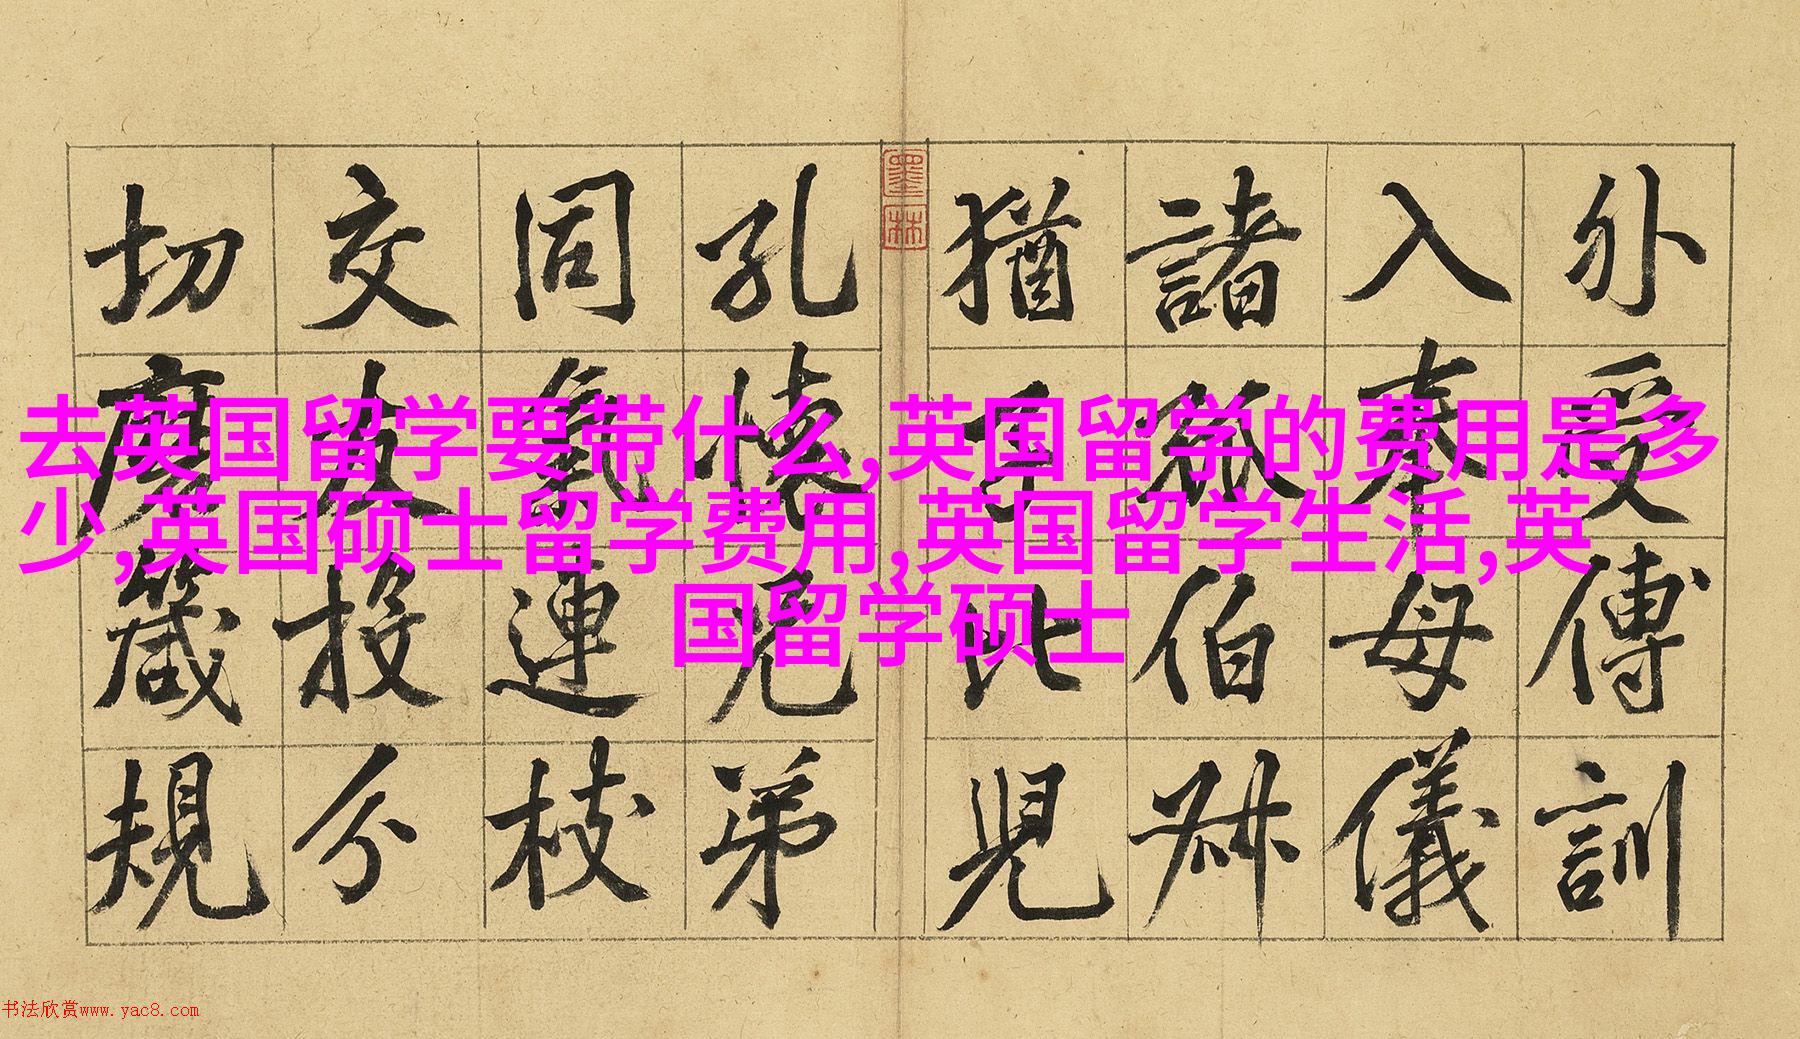 外受傅訓
入奉母儀
諸姑伯叔
猶子比兒
墨林
孔懷兄弟
同氣連枝
交友投分
切磨箴規
去英国留学要带什么,英国留学的费用是多
少,英国硕士留学费用,英国留学生活,英
国留学硕士
书法欣赏www.yac8.com